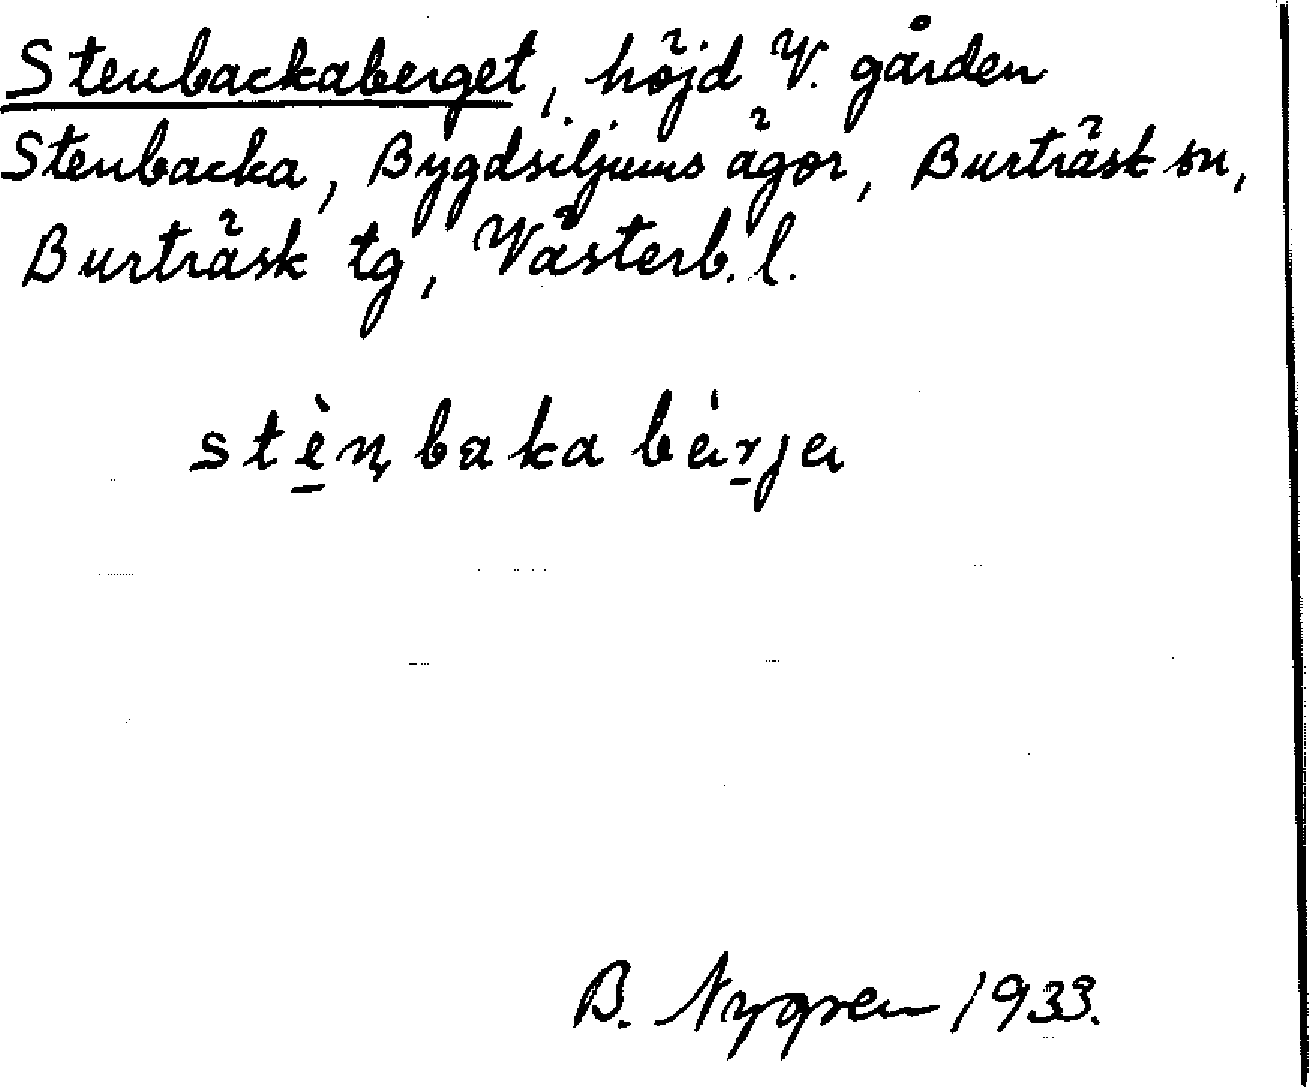 Stenbackaberget, höjd V. gården
Stenbacka, Bygdsiljums ägor, Burträsk sn,
Burträsk tg, Västerb. l.
stè̱n̥baka bèṟja
B. Nygren 1933.